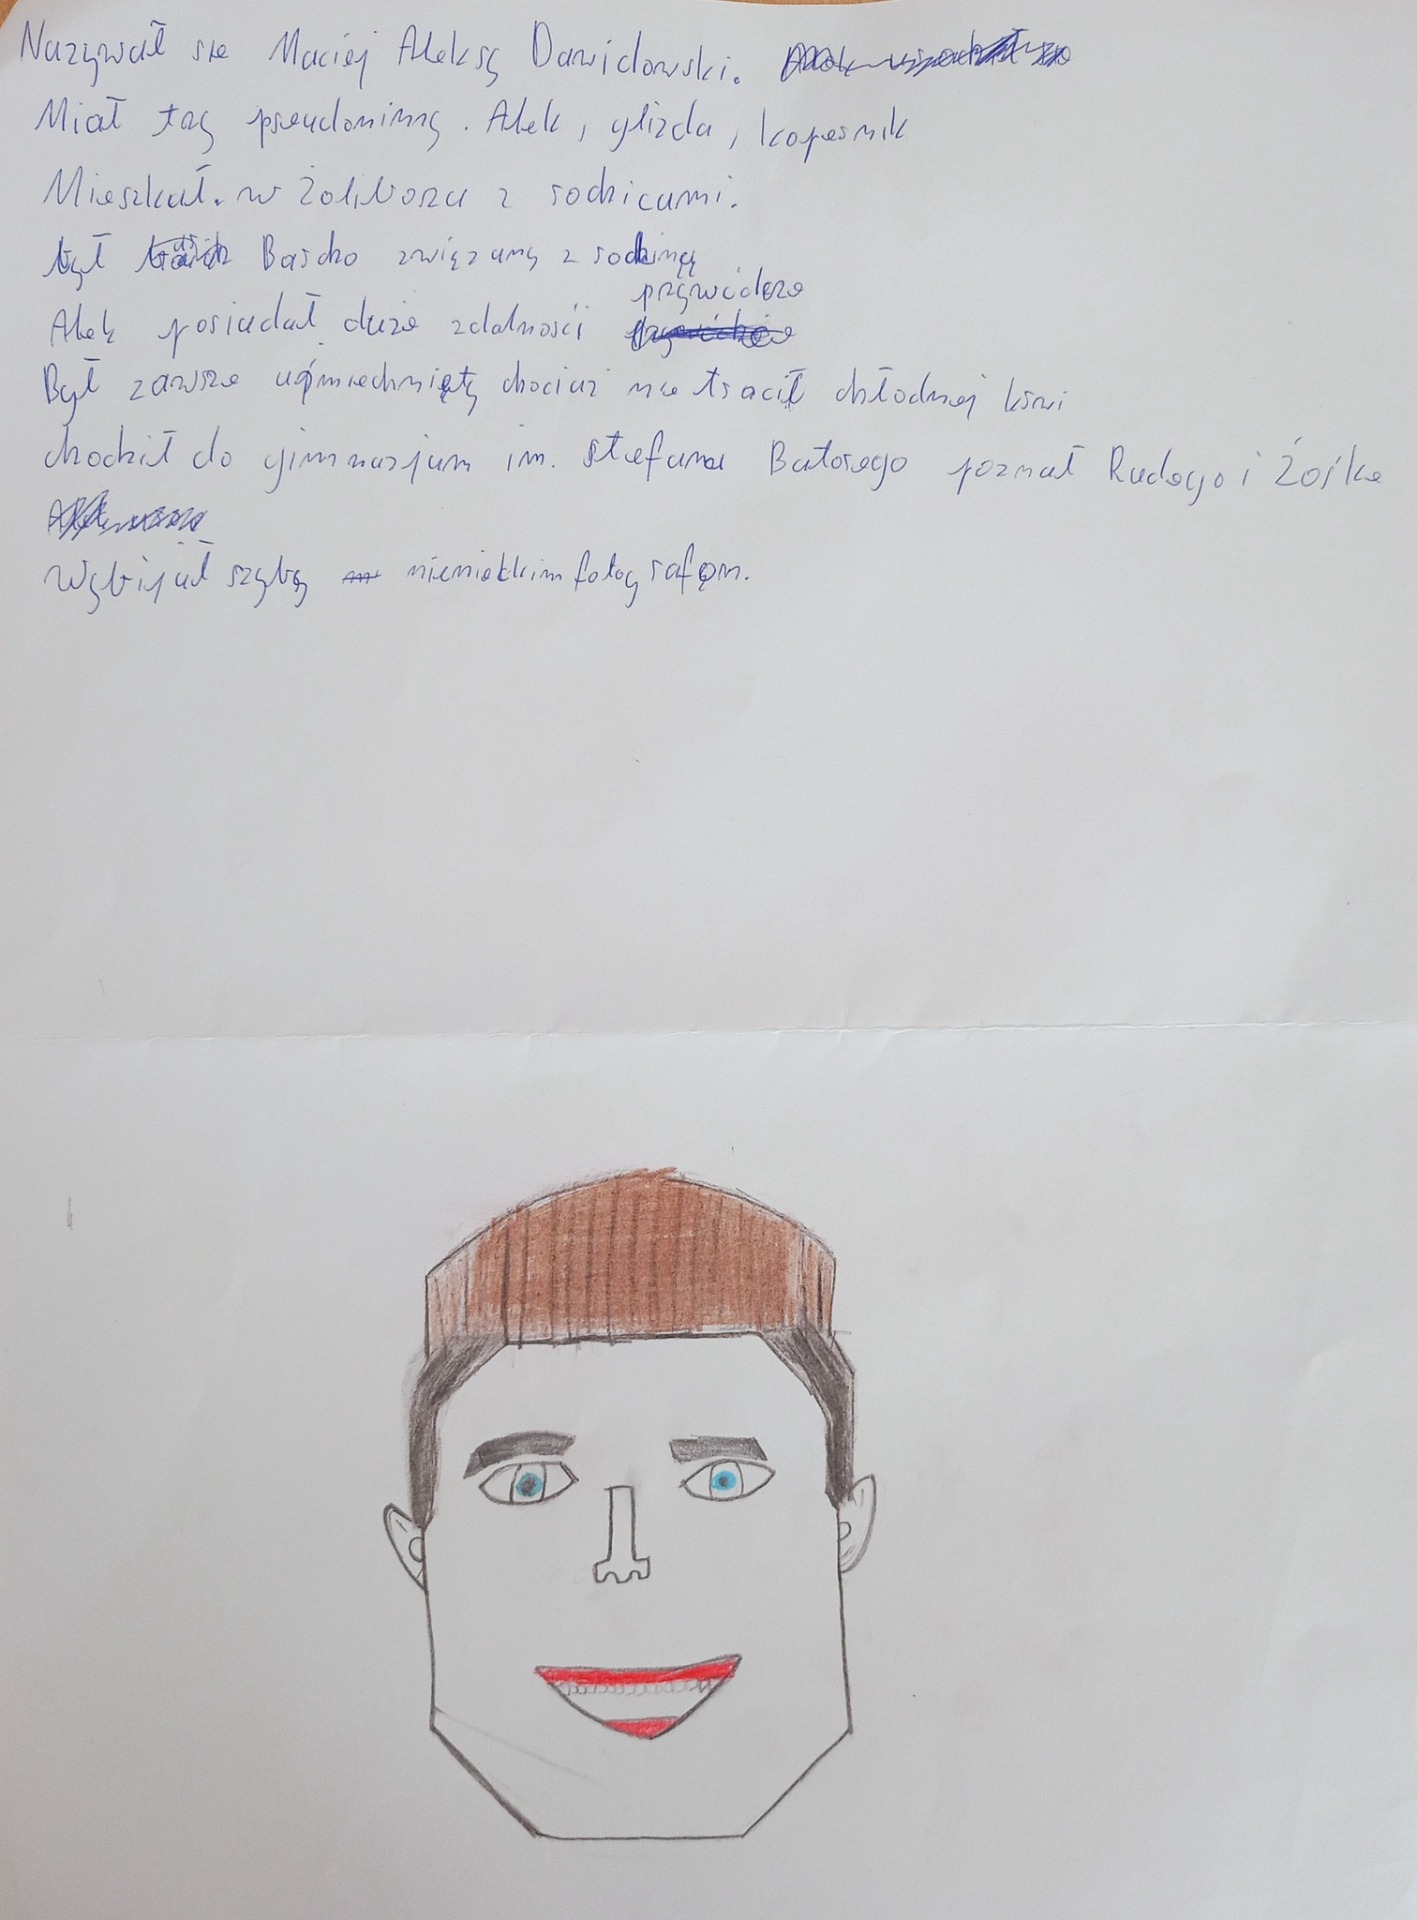 Nazywał sie Maciej Aleksy Dawidowski.
Miał trzy pseudonimy. Alek, glizda, kopernik
Mieszkał. w Żoliborzu z rodzicami.
był Bardzo związany z rodziną
Alek posiadał duże zdolności przywódcze
Był zawsze uśmiechnięty chociaż nie tracił chłodnej krwi
chodził do gimnazjum im. Stefana Batorego poznał Rudego i Zośke
Wybijał szyby niemieckim fotografom.